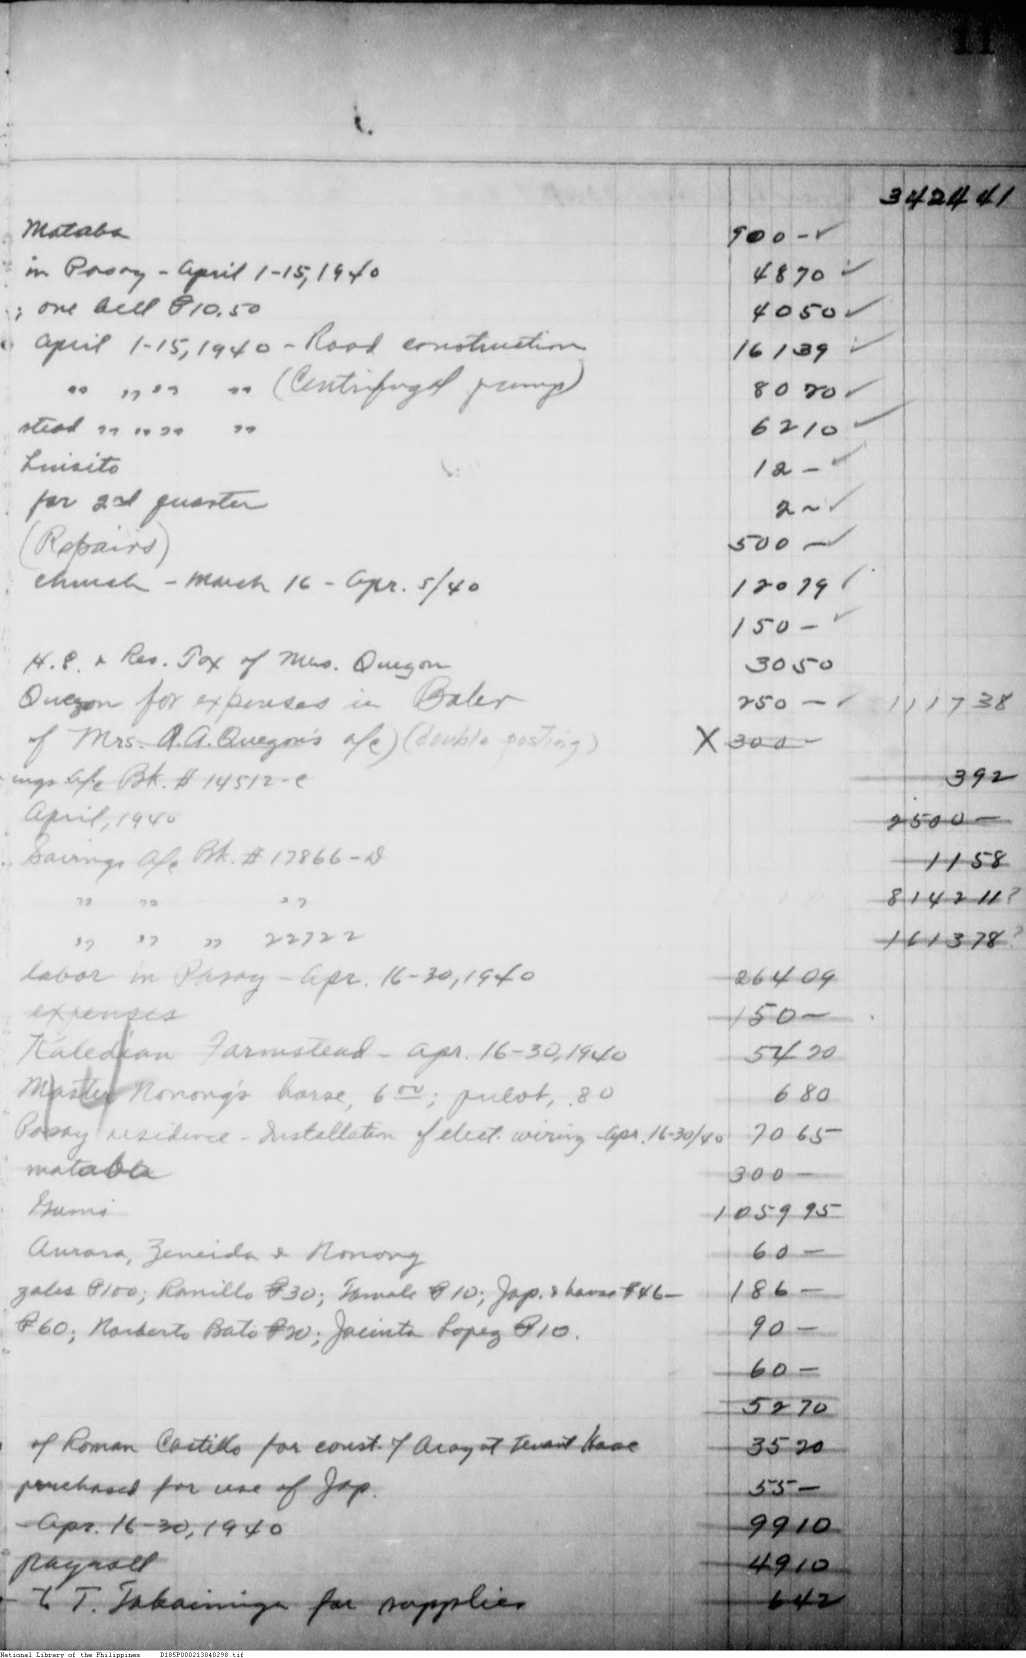 11
342441
Mataba 900 - ✓
in Pasay - April 1-15, 1940 4870 ✓
; one bill ₱10.50 4050 ✓
April 1-15, 1940 - Road construction 16139 ✓
" " " " (Centrifugal pump) 8020 ✓
stead " " " " 6210 ✓
Luisito 12 - ✓
for 2nd quarter 2 - ✓
(Repairs) 500 - ✓
church - March 16 - Apr. 5/40 12079 ✓
150 - ✓
H.P. & Res. Tax of Mrs. Quezon 3050
Quezon for expenses in Baler 250 - ✓ 111738
of Mrs. A.A. Quezon's a/c) (double posting) X 300 -
ings a/c Bk. # 14512-C 392
April, 1940 2500 -
Savings a/c Bk. # 17866-D 1158
" " " 8142 11?
" " " 22722 161378?
labor in Pasay - Apr. 16-30, 1940 26409
expenses 150 -
Kaledian Farmstead - Apr. 16-30, 1940 5420
Master Nonong's horse, 6.00; pulot, .80 680
Pasay residence - Installation of elect. wiring Apr. 16-30/40 7065
mataba 300 -
1059 95
Aurora, Zeneida & Nonong 60 -
zales ₱100; Ranillo ₱30; ₱10; Jap. & ₱46 - 186 -
₱60; Norberto Bato ₱20; Jacinta Lopez ₱10. 90 -
60 -
5270
of Roman Castillo for const. of Arayat Tenant House 3520
purchased for use of Jap. 55 -
- Apr. 16-30, 1940 9910
payroll 4910
to T. for supplies 642
National Library of the Philippines D185P000213040298.tif